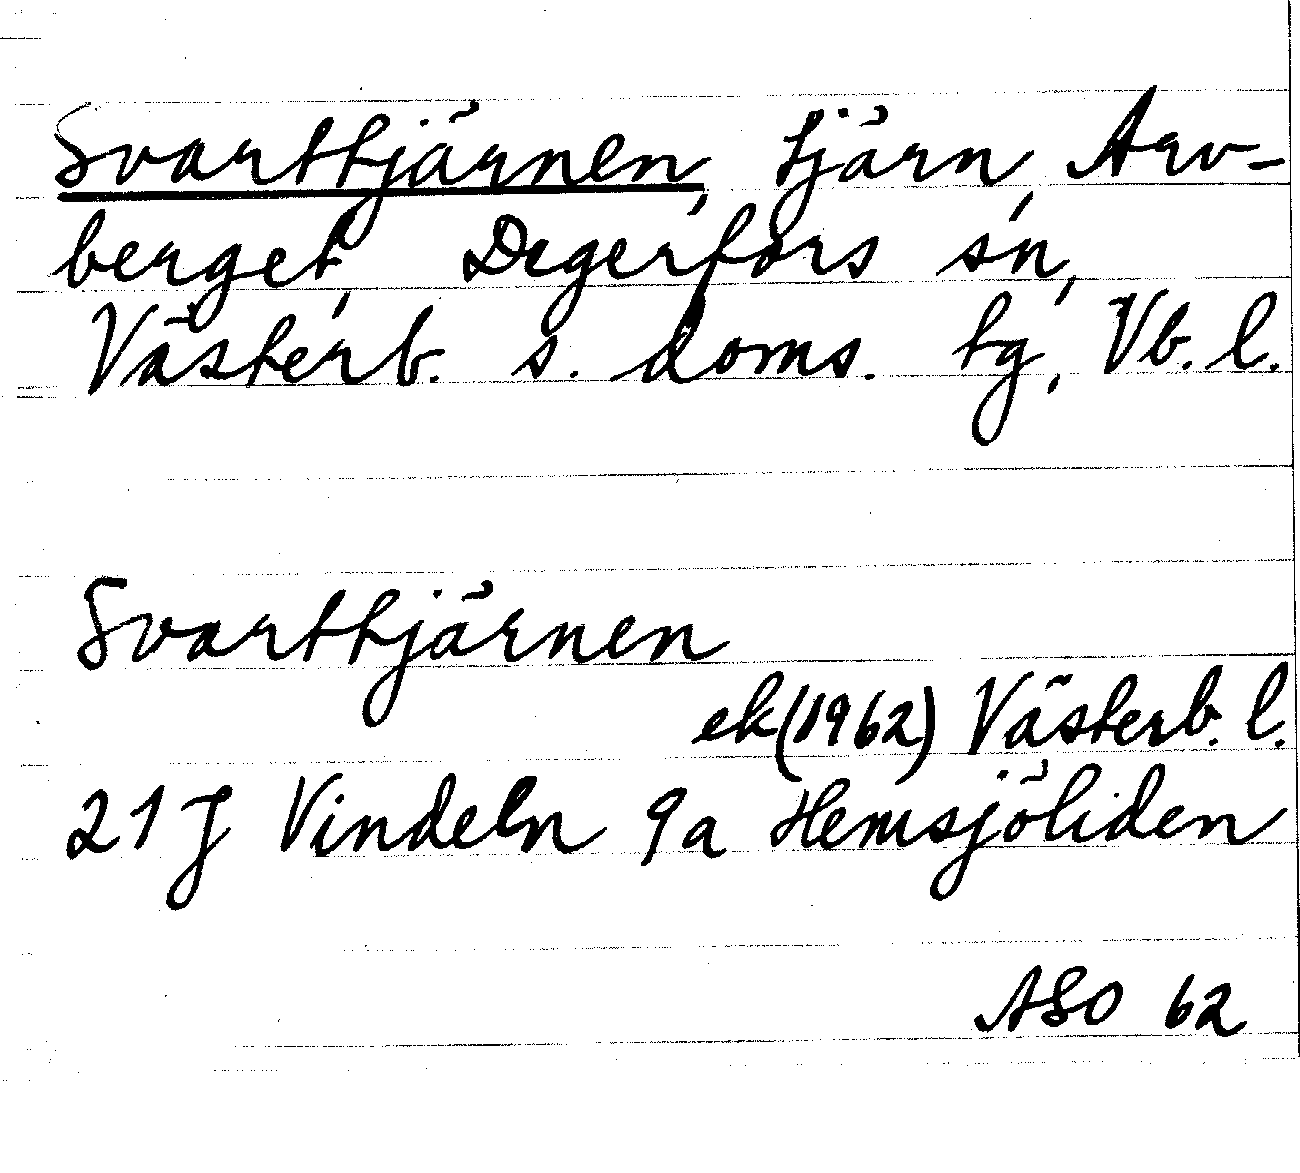 Svarttjärnen, tjärn, Arv-
berget, Degerfors sn,
Västerb. s. doms. tg, Vb. l.
Svarttjärnen
ek (1962) Västerb. l.
21 J Vindeln 9a Hemsjöliden
ASO 62